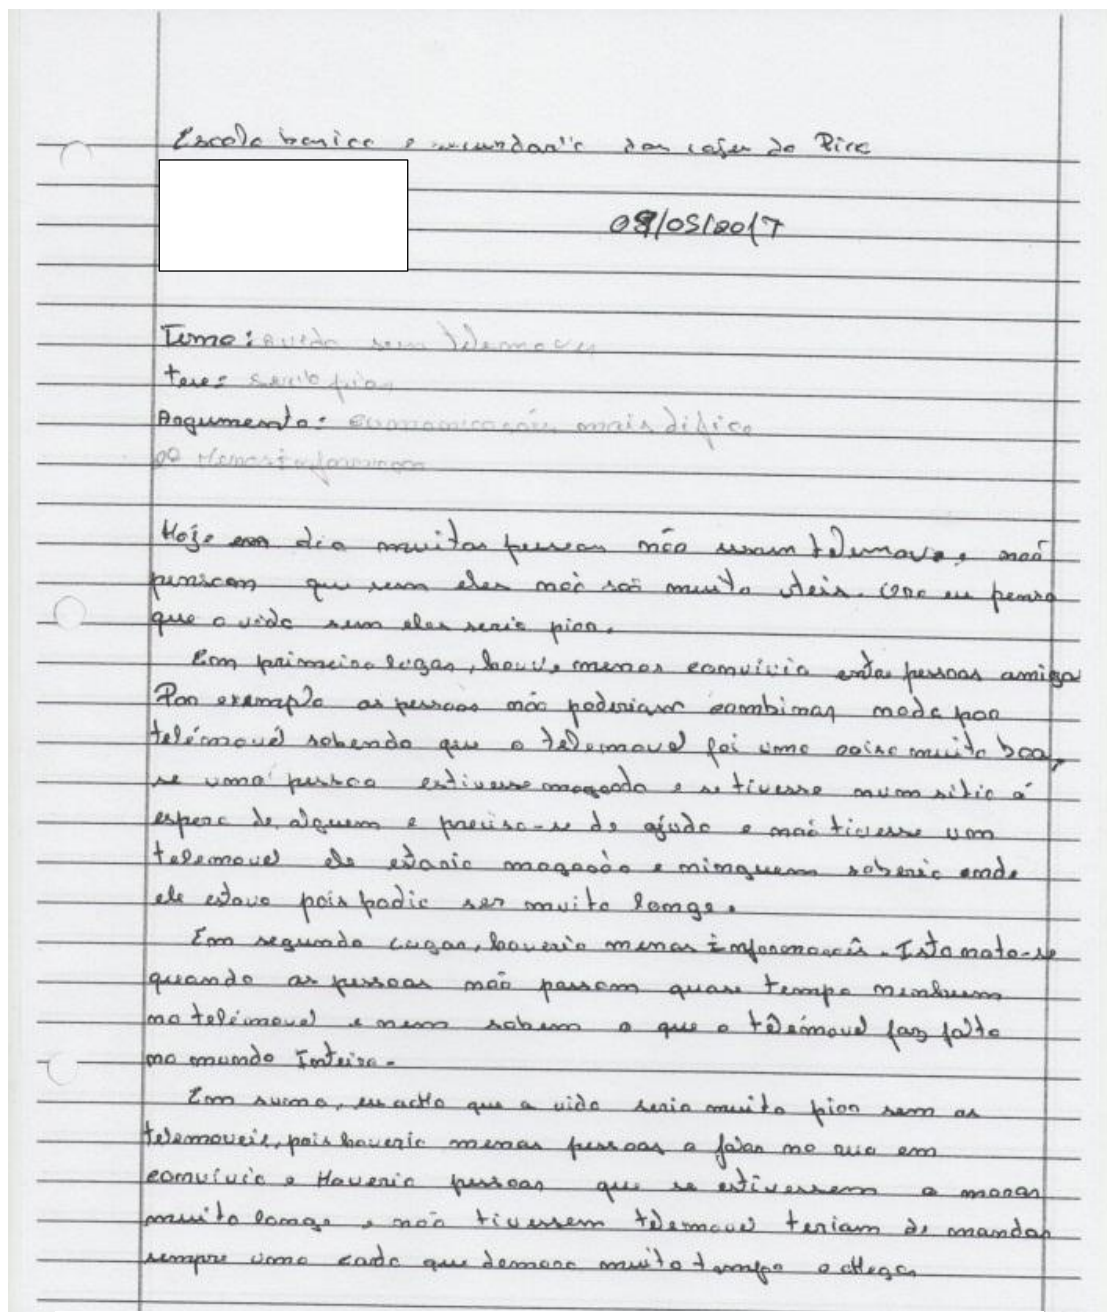 Escola basica e secundaria das lajes do Pico
09/05/2017
Tema: a vida sem telemovel
tese: seria pior
Argumento: comonicação mais dificil
Menos informaçao
Hoje em dia muitas pessoas não usam telemovel, naõ
pensam que sem eles naõ saõ muito uteis. Ora eu penso
que a vida sem eles seria pior.
Em primeiro lugar, houve menos convívio entre pessoas amigas
Por exemplo as pessoas não poderiam combinar nada por
telémovel sabendo que o telemovel foi uma coisa muito boa,
se uma pessoa estivesse magoada e se tivesse num sitio á
espera de alguem e preciso-se de ajuda e naõ tivesse um
telemovel ele estaria magoado e ninguem saberia onde
ele estava pois podia ser muito longe.
Em segundo lugar, haveria menos informaçaõ. Isto nota-se
quando as pessoas não passam quase tempo nenhum
no telémovel e nem sabem o que o telémovel faz falta
no mundo Inteiro.
Em suma, eu acho que a vida seria muito pior sem os
telemoveis, pois haveria menos pessoas a falar na rua em
convívio e Haveria pessoas que se estivessem a morar
muito longe e não tivessem telemovel teriam de mandar
sempre uma carta que demora muito tempo a chegar